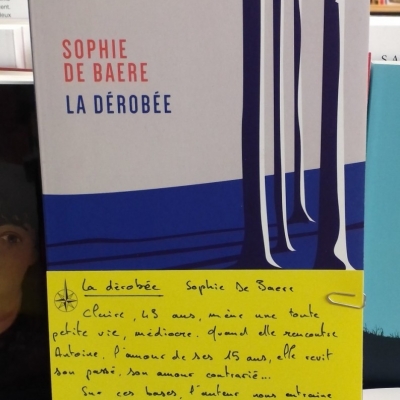 SOPHIE
DE BAERE
LA DÉROBÉE
La dérobée Sophie De Baere
Claire, 43 ans, mène une toute
petite vie, médiocre. Quand elle rencontre
Antoine, l'amour de ses 15 ans, elle revit
son passé, son amour contrarié...
Sur ces bases, l'auteur nous entraîne